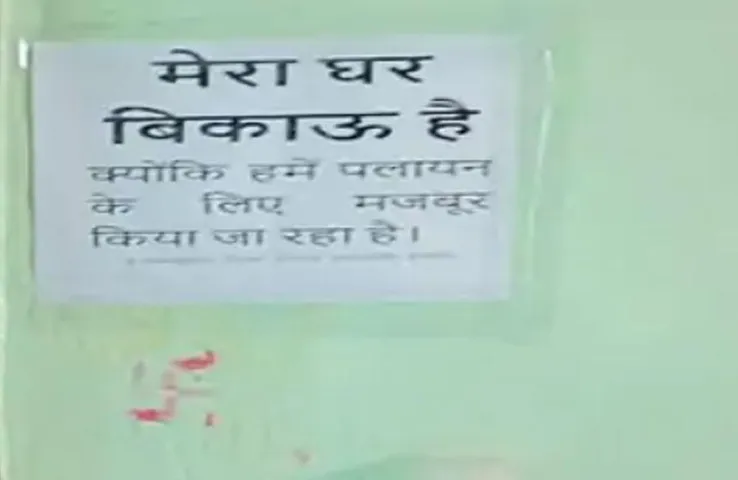 मेरा घर
बिकाऊ है
क्योंकि हमें पलायन
के लिए मजबूर
किया जा रहा है।